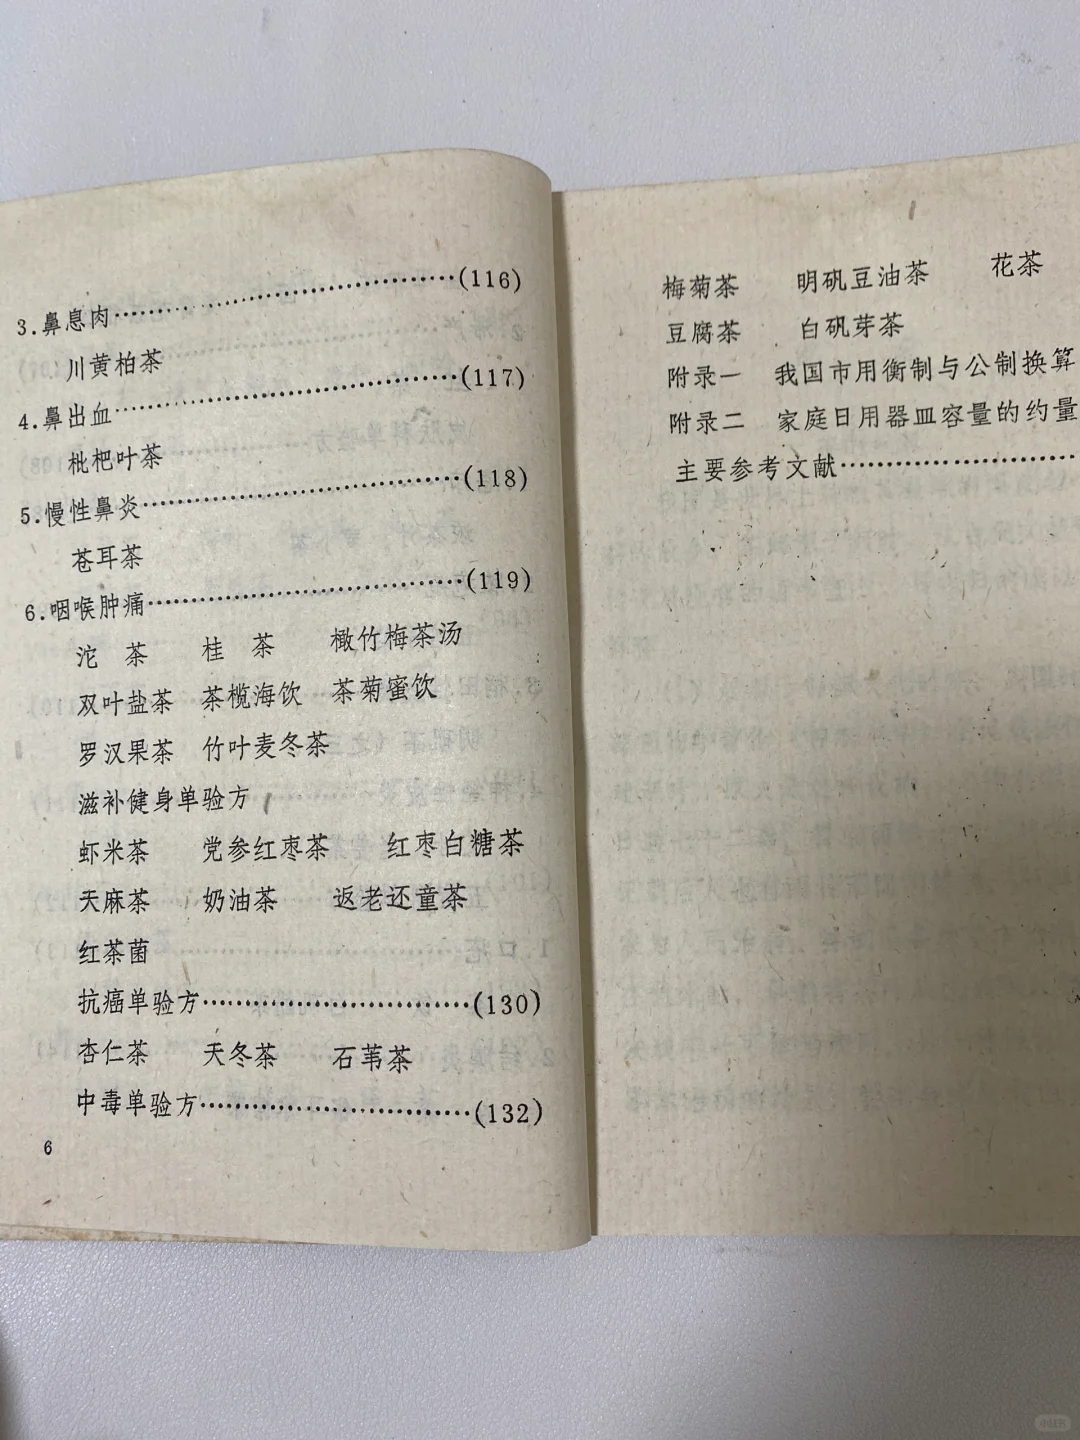 3.鼻息肉……………………………(116)
川黄柏茶
4.鼻出血……………………………(117)
枇杷叶茶
5.慢性鼻炎…………………………(118)
苍耳茶
6.咽喉肿痛…………………………(119)
沱　茶　桂　茶　橄竹梅茶汤
双叶盐茶　茶榄海饮　茶菊蜜饮
罗汉果茶　竹叶麦冬茶
滋补健身单验方
虾米茶　党参红枣茶　红枣白糖茶
天麻茶　奶油茶　返老还童茶
红茶菌
抗癌单验方…………………………(130)
杏仁茶　天冬茶　石苇茶
中毒单验方…………………………(132)
6
梅菊茶　明矾豆油茶　花茶
豆腐茶　白矾芽茶
附录一　我国市用衡制与公制换算
附录二　家庭日用器皿容量的约量
主要参考文献………………………
小红书